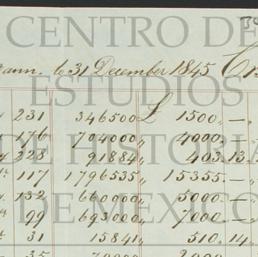 CENTRO DE
ann. to 31 December 1845
ESTUDIOS
231 346500 £ 1500 "—"
176 704000 " 4000 "—"
DE HISTORIA
223 91884 " 403 " 13
117 1796535 " 15355 "—
132 660000 " 5000 "—
DE MEXICO
99 693000 " 7000 "—
31 15841 " 510 " 14
35